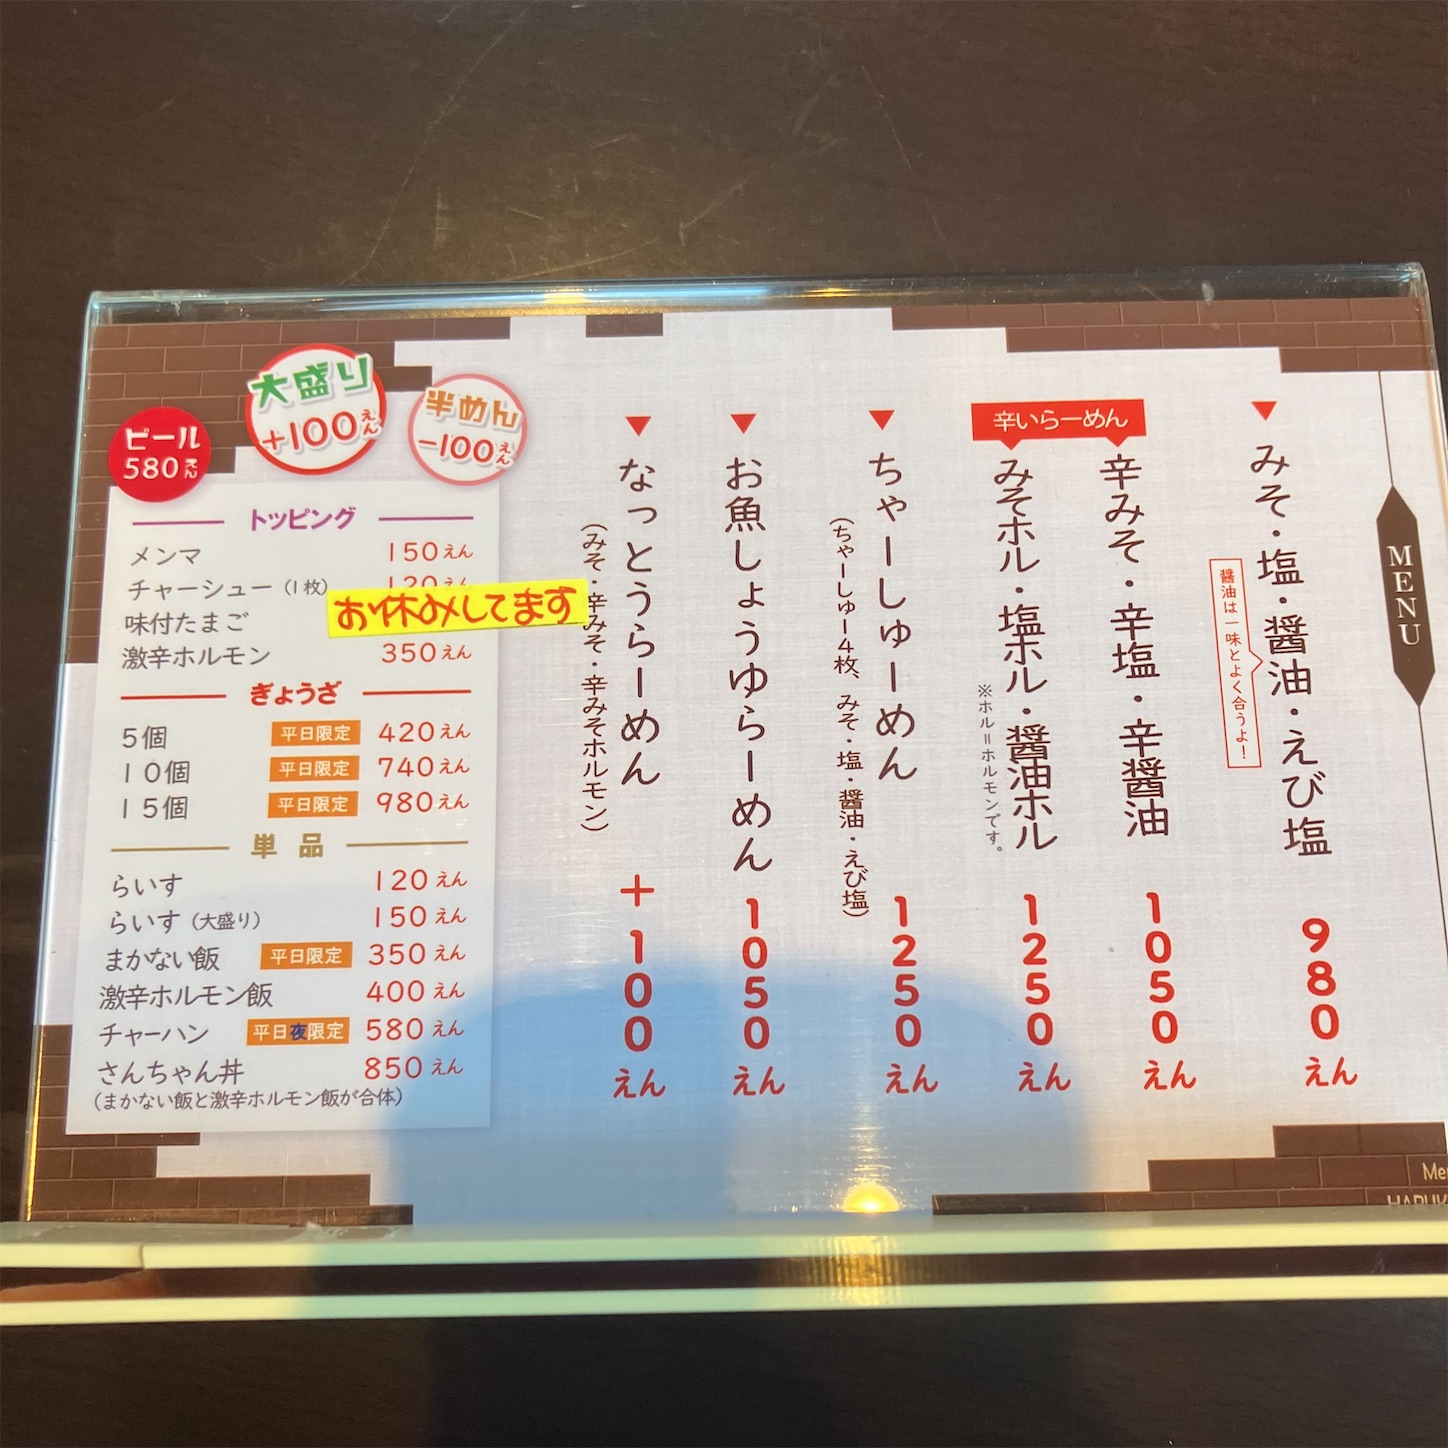 MENU
みそ・塩・醤油・えび塩 980えん
醤油は一味とよく合うよ！
辛いらーめん
辛みそ・辛塩・辛醤油 1050えん
みそホル・塩ホル・醤油ホル 1250えん
※ホル＝ホルモンです。
ちゃーしゅーめん 1250えん
(ちゃーしゅー4枚、みそ・塩・醤油・えび塩)
お魚しょうゆらーめん 1050えん
なっとうらーめん +100えん
(みそ・辛みそ・辛みそホルモン)
ビール
580えん
大盛り
+100えん
半めん
-100えん
トッピング
メンマ 150えん
チャーシュー(1枚) 120えん
味付たまご
お休みしてます
激辛ホルモン 350えん
ぎょうざ
5個 平日限定 420えん
10個 平日限定 740えん
15個 平日限定 980えん
単品
らいす 120えん
らいす(大盛り) 150えん
まかない飯 平日限定 350えん
激辛ホルモン飯 400えん
チャーハン 平日夜限定 580えん
さんちゃん丼 850えん
(まかない飯と激辛ホルモン飯が合体)